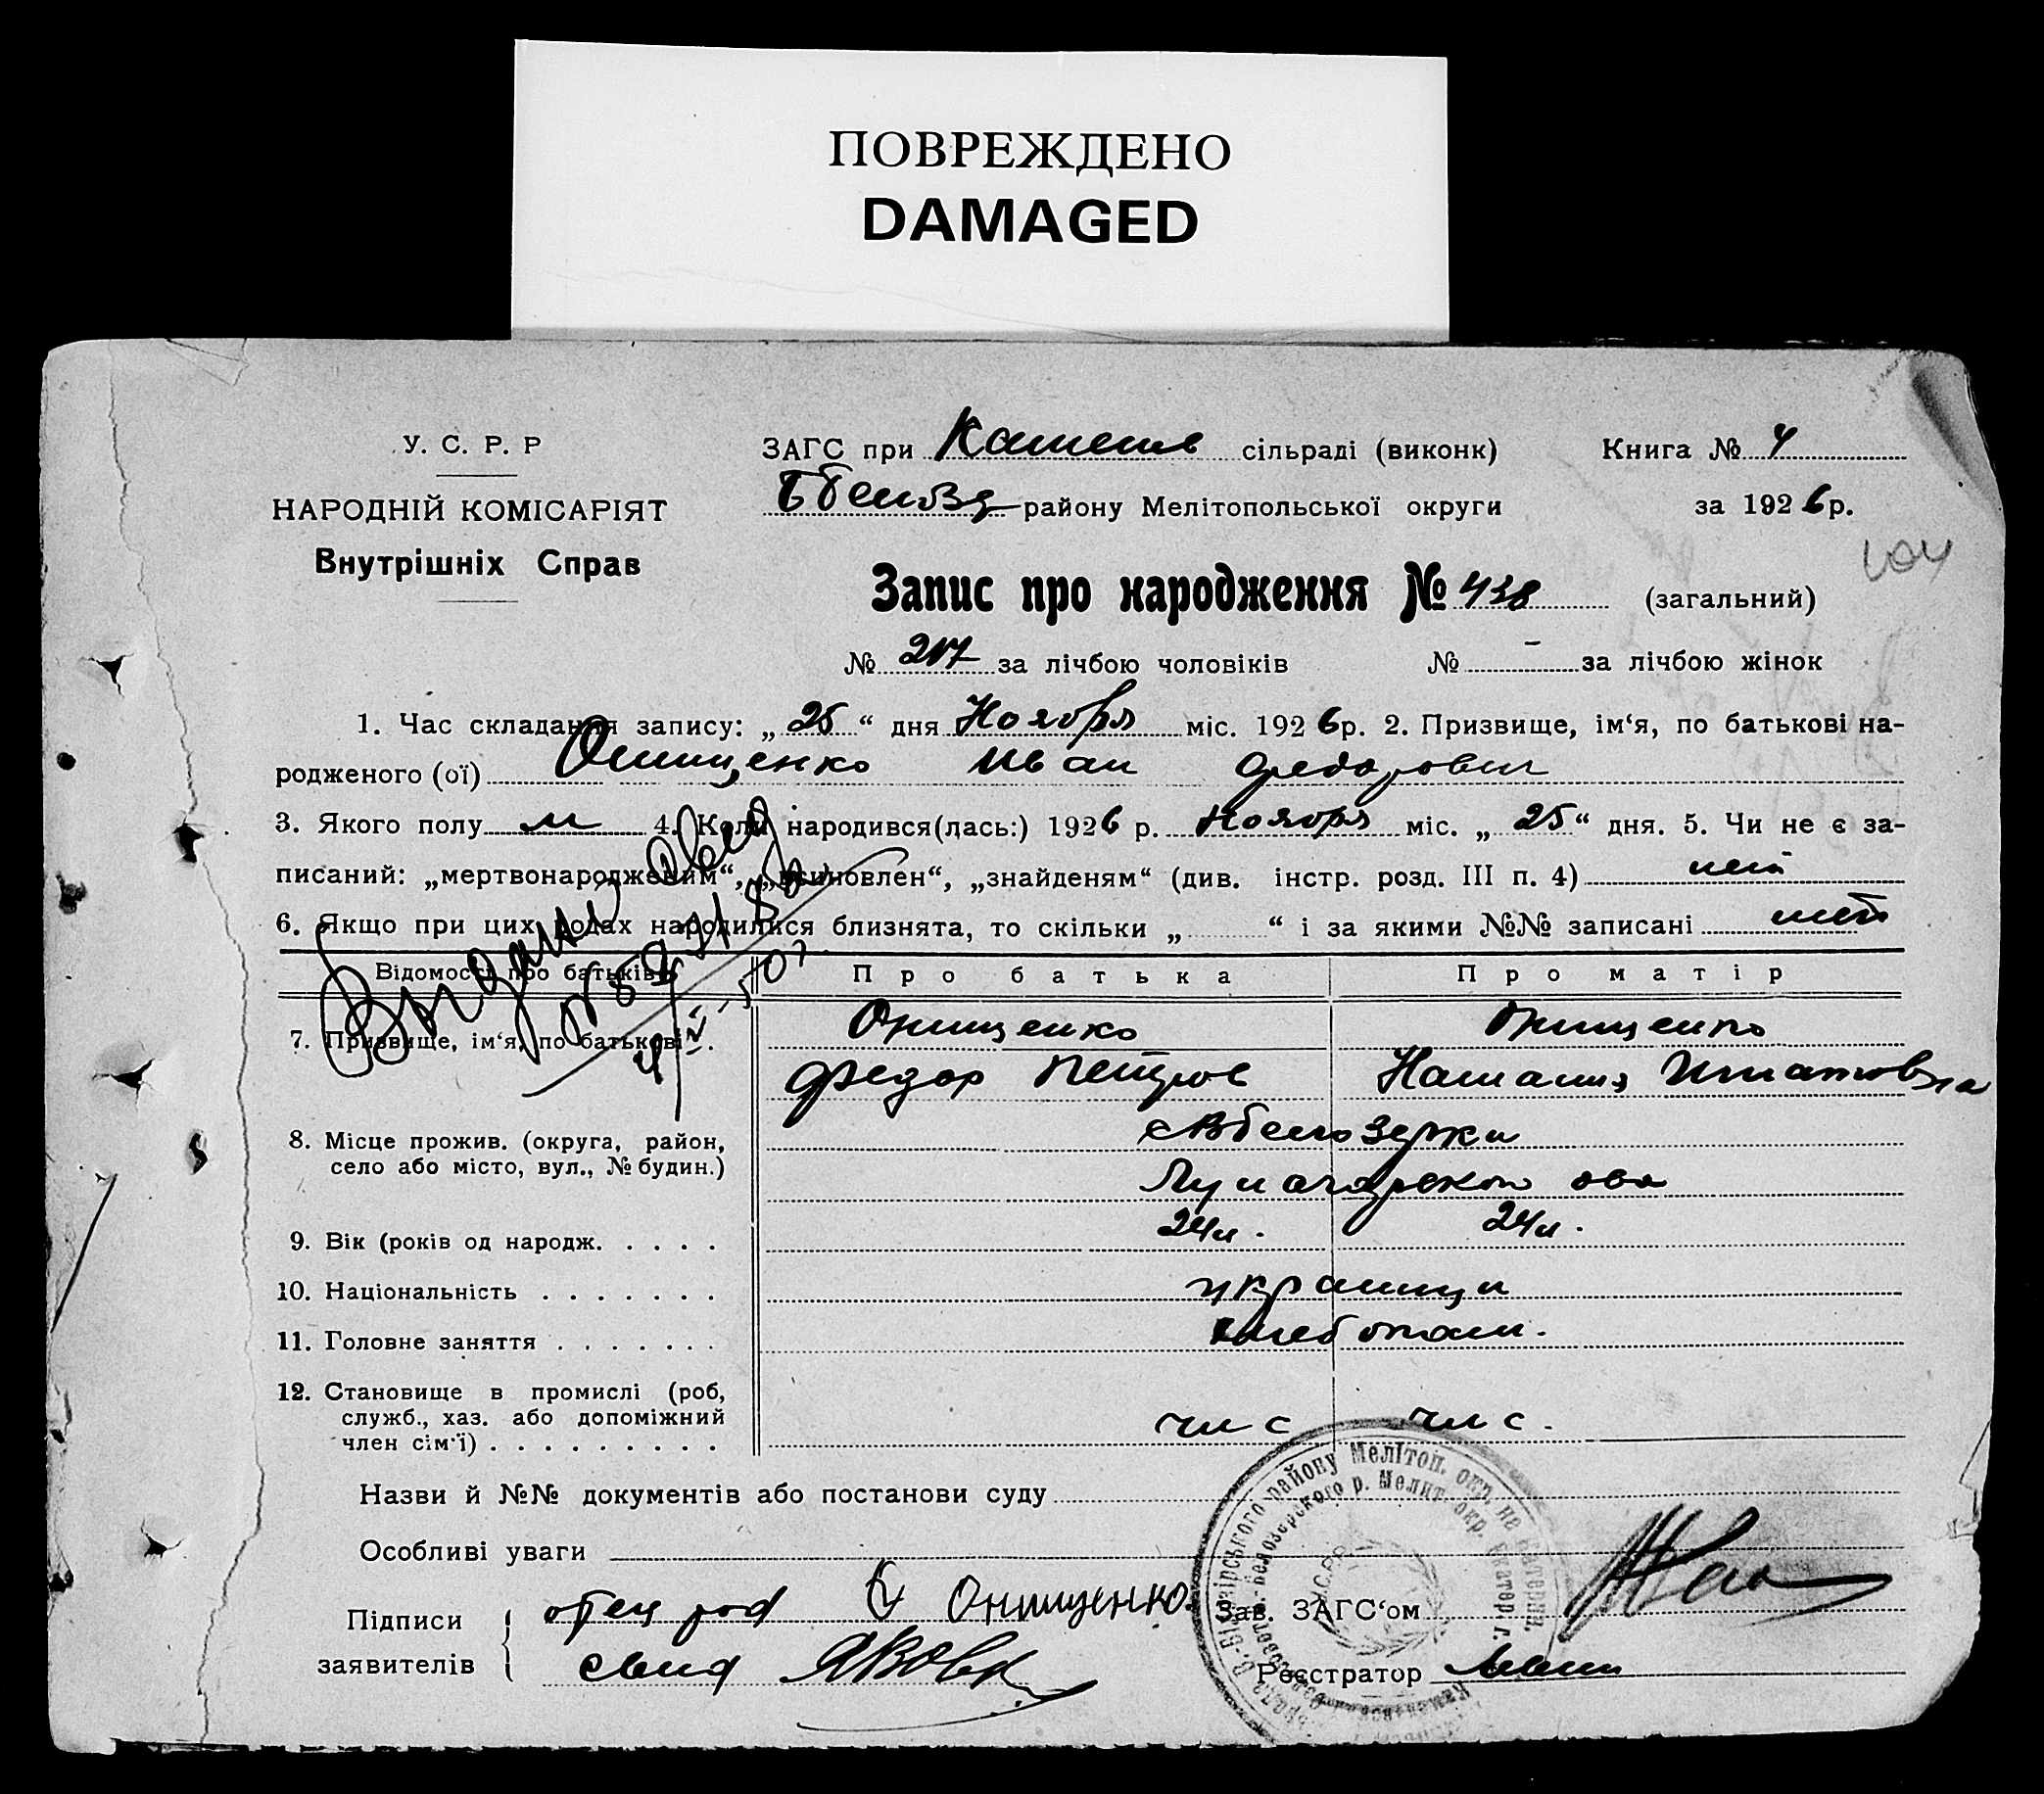 ПОВРЕЖДЕНО
DAMAGED
У. С. Р. Р
НАРОДНІЙ КОМІСАРІЯТ
Внутрішніх Справ
ЗАГС при сільраді (виконк)
району Мелітопольської округи
Книга № 4
за 1926 р.
104
Запис про народження № 438 (загальний)
№ 217 за лічбою чоловіків № - за лічбою жінок
1. Час складання запису: „25“ дня Ноября міс. 1926 р. 2. Призвище, ім‘я, по батькові на-
родженого (ої) Онищенко Иван Федорович
3. Якого полу м 4. Коли народився(лась:) 1926 р. Ноября міс. „25“ дня. 5. Чи не є за-
писаний: „мертвонародженим“, „всиновлен“, „знайденям“ (див. інстр. розд. III п. 4) нет
6. Якщо при цих родах народилися близнята, то скільки „ “ і за якими №№ записані нет
Відомості про батьків Про батька Про матір
7. Призвище, ім‘я, по батькові . Онищенко Онищенко
Федор Петров Наталия Игнатовна
8. Місце прожив. (округа, район, с Вбелозерки
село або місто, вул., № будин.)
Луначарского
9. Вік (років од народж. . . . . 24 л. 24 л.
10. Національність . . . . . . . украинци
11. Головне заняття . . . . . . . хлебопаш.
12. Становище в промислі (роб,
служб., хаз. або допоміжний
член сім‘ї) . . . . . . . . . чл с чл с.
Назви й №№ документів або постанови суду
Особливі уваги
Підписи
заявителів
отец Онищенко.
Зав. ЗАГС‘ом
Реєстратор